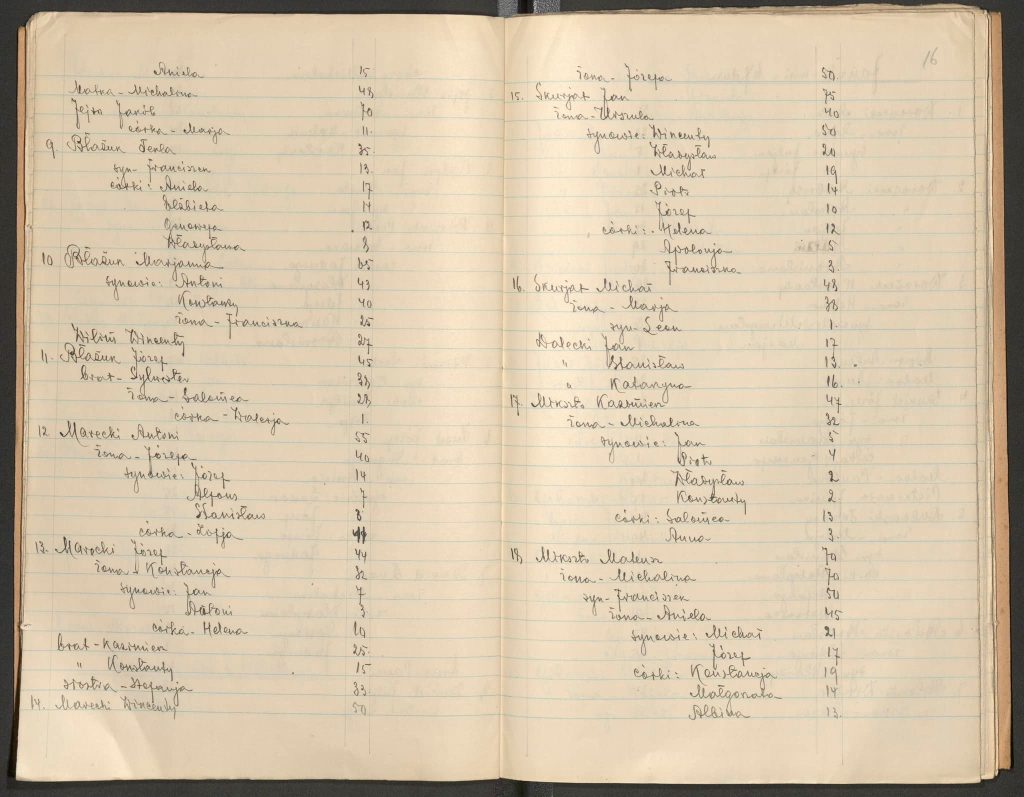 Aniela 15
Matka - Michalina 48
Jakób 70
córka - Marja 11.
9. Błażun Tekla 35.
syn - Franciszek 13.
córki: Aniela 17
Elżbieta 14
Genowefa 12
Władysława 3
10 Błażun Marjanna 65
synowie: Antoni 43
Konstanty 40
żona - Franciszka 25
Wincenty 27
11. Błażun Józef 45
brat - Sylwester 38
żona - Salomea 28
córka - Walerja 1.
12 Marecki Antoni 55
żona - Józefa 40
synowie: Józef 14
Alfons 7
Stanisław 3
córka - Zofja
13. Marecki Józef 44
żona - Konstancja 32
synowie: Jan 7
Antoni 3
córka - Helena 10
brat - Kazimierz 25.
" Konstanty 15
siostra - Stefanja 33
14. Marecki Wincenty 50
16
żona - Józefa 50.
15. Skurjat Jan 75
żona - Urszula 40
synowie: Wincenty 50
Władysław 20
Michał 19
Piotr 14
Józef 10
córki: Helena 12
Apolonja 5
Franciszka 3.
16. Skurjat Michał 48
żona - Marja 38
syn - Leon 1.
Walecki Jan 17
" Stanisław 13.
" Katarzyna 16.
17. Mikszto Kazimierz 47
żona - Michalina 32
synowie: Jan 5
Piotr 4
Władysław 2
Konstanty 2
córki: Salomea 13
Anna 3.
18 Mikszto Mateusz 70
żona - Michalina 70
syn - Franciszek 50
żona - Aniela 45
synowie: Michał 21
Józef 17
córki: Konstancja 19
Małgorzata 14
Albina 13.